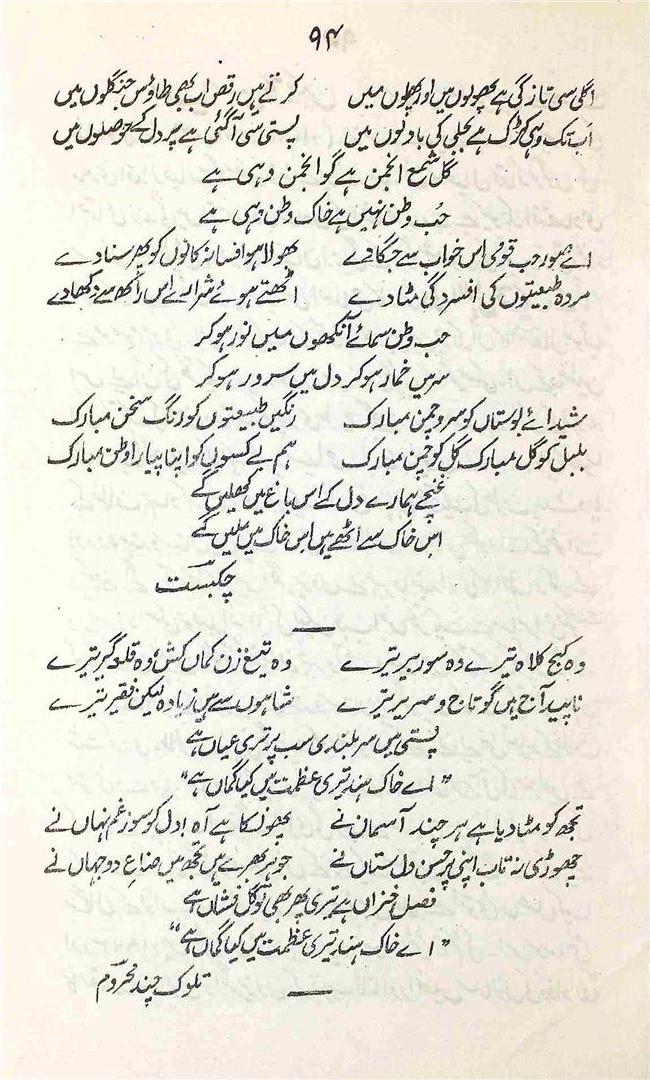 ۹۴
اگلی سی تازگی ہے پھولوں میں اور پھلوں میں کرتے ہیں رقص اب بھی طاؤس جنگلوں میں
اب تک وہی کڑک ہے بجلی کی بادلوں میں پستی سی آگئی ہے پر دل کے حوصلوں میں
گل شمع انجمن ہے گو انجمن وہی ہے
حب وطن نہیں ہے خاک وطن وہی ہے
اے صور حب قومی اس خواب سے جگا دے بھولا ہوا فسانہ کانوں کو پھر سنا دے
مردہ طبیعتوں کی افسردگی مٹا دے اٹھتے ہوئے شرارے اس راکھ سے دکھا دے
حب وطن سمائے آنکھوں میں نور ہوکر
سر میں خمار ہوکر دل میں سرور ہوکر
شیدائے بوستاں کو سرو چمن مبارک رنگیں طبیعتوں کو رنگ سخن مبارک
بلبل کو گل مبارک گل کو چمن مبارک ہم بے کسوں کو اپنا پیارا وطن مبارک
غنچے ہمارے دل کے اس باغ میں کھلیں گے
اس خاک سے اٹھے ہیں اس خاک میں ملیں گے
چکبست
وہ کج کلاہ تیرے وہ سوربیر تیرے وہ تیغ زن کماں کش وہ قلعہ گیر تیرے
ناپید آج ہیں گو تاج و سریر تیرے شاہوں سے ہیں زیادہ لیکن فقیر تیرے
پستی میں سربلندی سب پر تری عیاں ہے
"اے خاک ہند تیری عظمت میں کیا گماں ہے"
تجھ کو مٹا دیا ہے ہر چند آسماں نے پھونکا ہے آہ دل کو سوز غم نہاں نے
چھوڑی نہ تاب اپنی پر حسن دل ستاں نے جوہر بھرے ہیں تجھ میں صناع دو جہاں نے
فصل خزاں ہے تیری پھر بھی تو گل فشاں ہے
"اے خاک ہند تیری عظمت میں کیا گماں ہے"
تلوک چند محروم